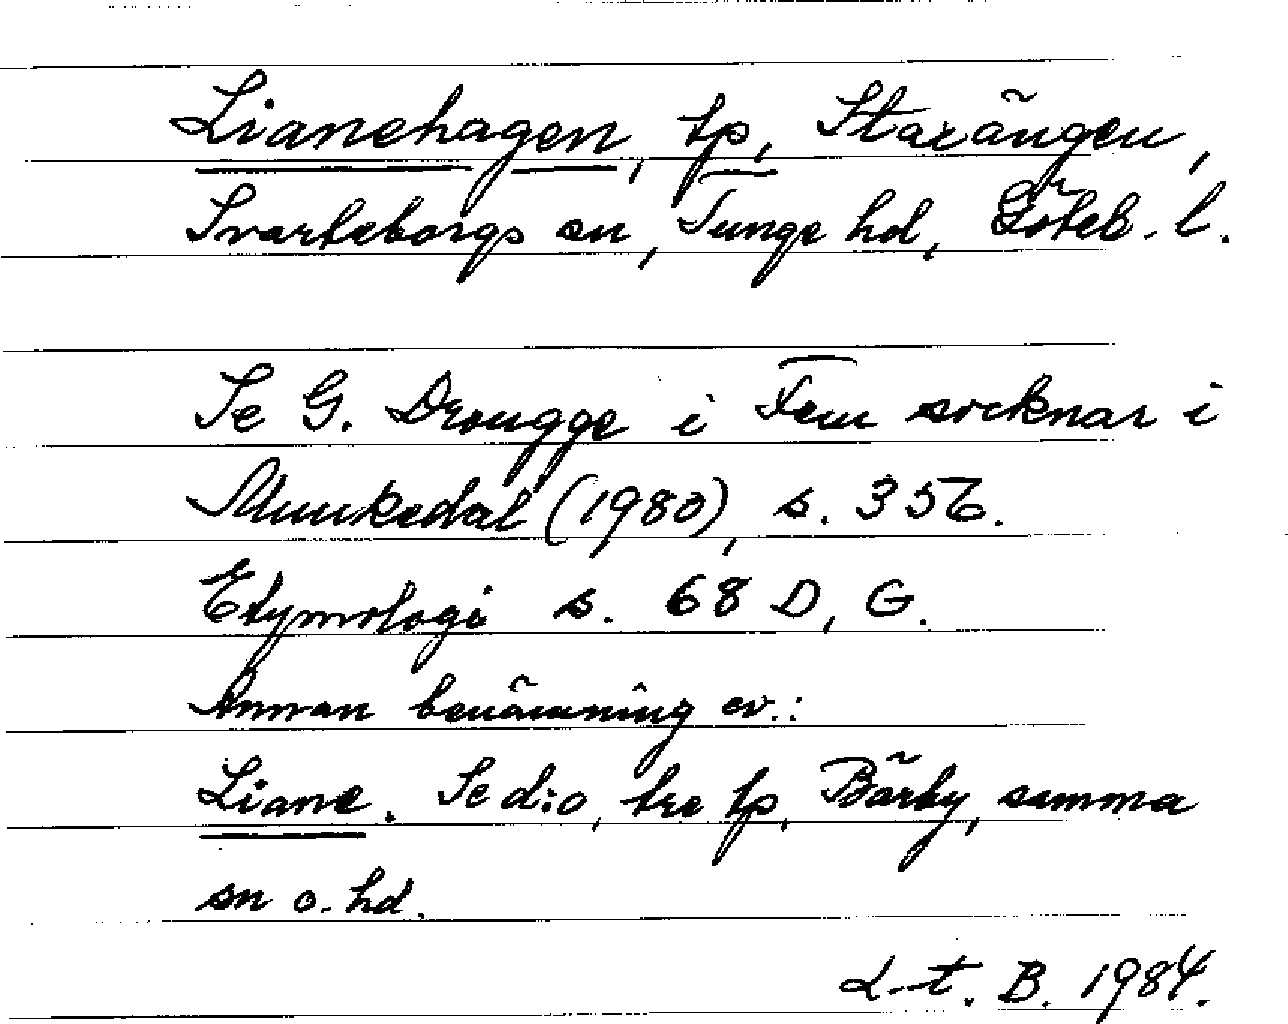 Lianehagen, tp, Starängen,
Svarteborgs sn, Tunge hd, Göteb. l.
Se G. Drougge i Fem socknar i
Munkedal (1980), s. 356.
Etymologi s. 68 D, G.
Annan benämning ev.:
Liane. Se d:o, tre tp, Bärby, samma
sn o. hd.
L-t. B. 1984.